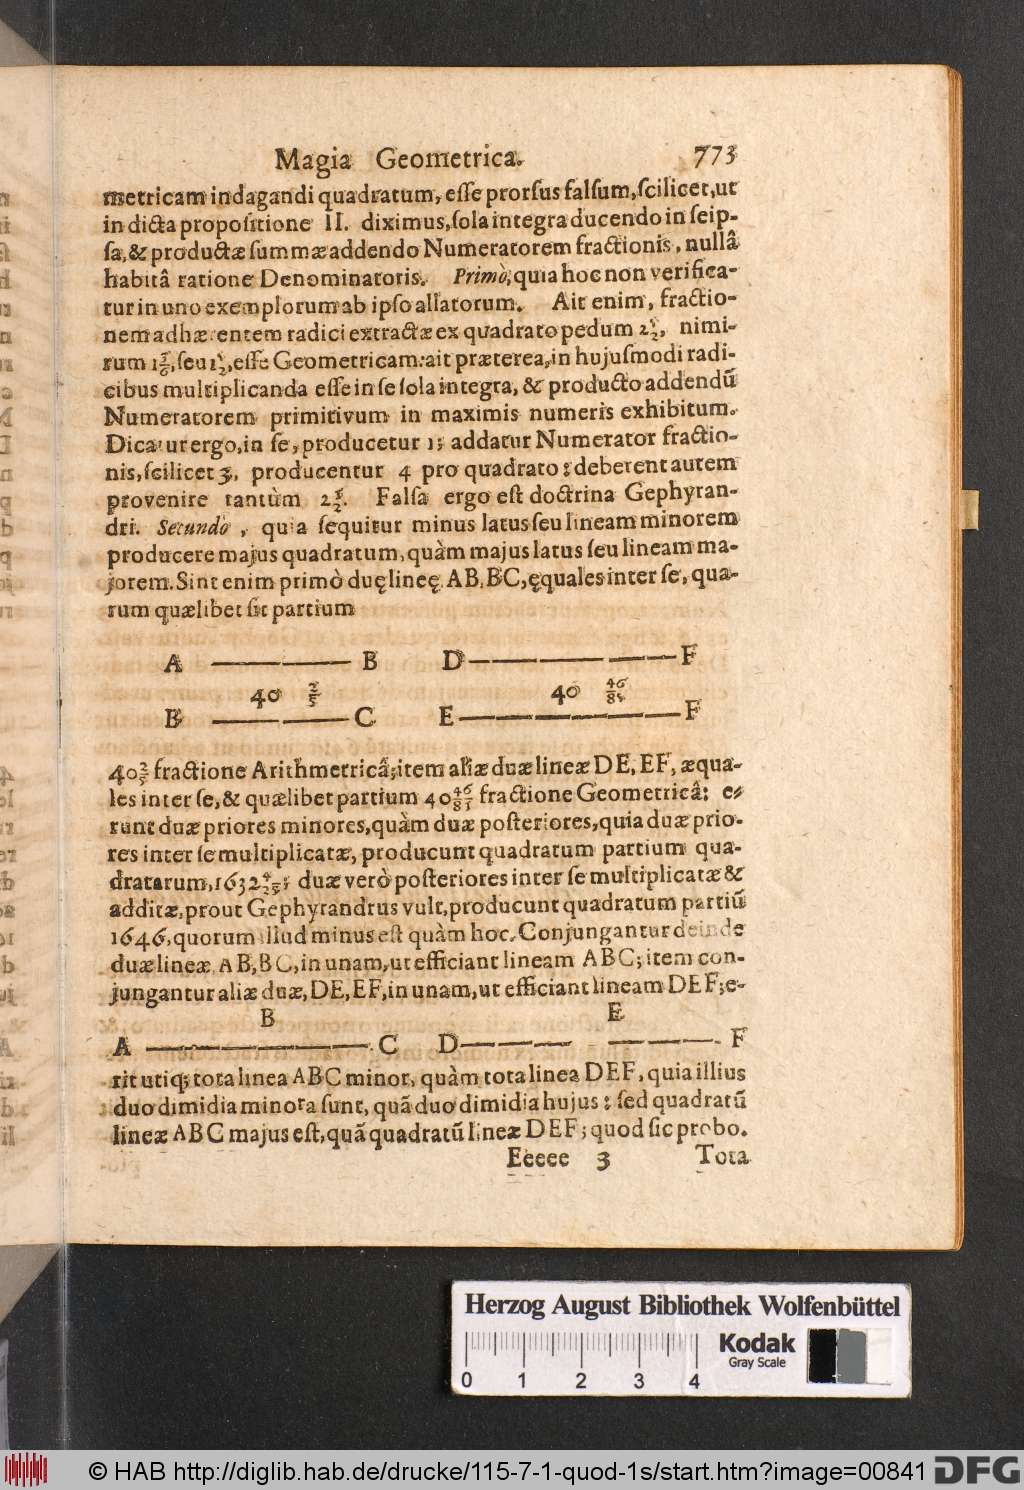 Magia Geometrica. 773
metricam indagandi quadratum, eſſe prorſus falſum, ſcilicet, ut
in dicta propoſitione II. diximus, ſola integra ducendo in ſeip-
ſa, & productæ ſummæ addendo Numeratorem fractionis, nullâ
habitâ ratione Denominatoris. Primò, quia hoc non verifica-
tur in uno exemplorum ab ipſo allatorum. Ait enim, fractio-
nem adhærentem radici extractæ ex quadrato pedum 2½, nimi-
rum 1 3/6, ſeu 1½, eſſe Geometricam: ait præterea, in hujuſmodi radi-
cibus multiplicanda eſſe in ſe ſola integra, & producto addendū
Numeratorem primitivum in maximis numeris exhibitum.
Dicatur ergo, in ſe, producetur 1; addatur Numerator fractio-
nis, ſcilicet 3, producentur 4 pro quadrato: deberent autem
provenire tantùm 2½. Falſa ergo eſt doctrina Gephyran-
dri. Secundò, quia ſequitur minus latus ſeu lineam minorem
producere majus quadratum, quàm majus latus ſeu lineam ma-
jorem. Sint enim primò duę lineę AB, BC, ęquales inter ſe, qua-
rum quælibet ſit partium
A B D F
40 2/5 40 46/81
B C E F
40 2/5 fractione Arithmetricâ; item aliæ duæ lineæ DE, EF, æqua-
les inter ſe, & quælibet partium 40 46/81 fractione Geometricâ: e-
runt duæ priores minores, quàm duæ poſteriores, quia duæ prio-
res inter ſe multiplicatæ, producunt quadratum partium qua-
dratarum, 1632 4/25; duæ verò poſteriores inter ſe multiplicatæ &
additæ, prout Gephyrandrus vult, producunt quadratum partiū
1646, quorum illud minus eſt quàm hoc. Conjungantur deinde
duæ lineæ AB, BC, in unam, ut efficiant lineam ABC; item con-
jungantur aliæ duæ, DE, EF, in unam, ut efficiant lineam DEF; e-
B E
A C D F
rit utiq; tota linea ABC minor, quàm tota linea DEF, quia illius
duo dimidia minora ſunt, quã duo dimidia hujus: ſed quadratū
lineæ ABC majus eſt, quã quadratū lineæ DEF; quod ſic probo.
Eeeee 3 Tota
Herzog August Bibliothek Wolfenbüttel
Kodak
Gray Scale
0 1 2 3 4
© HAB http://diglib.hab.de/drucke/115-7-1-quod-1s/start.htm?image=00841 DFG